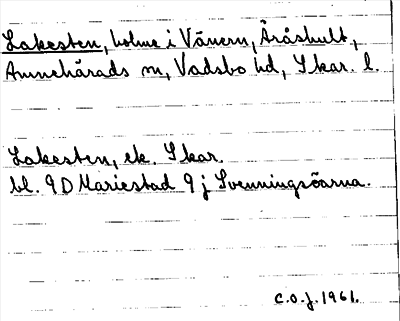 Lakesten, holme i Vänern, Åråshult,
Amnehärads sn, Vadsbo hd, Skar. l.
Lakesten, ek. Skar.
bl. 9D Mariestad 9j Svenningsöarna.
C.O.J. 1961.